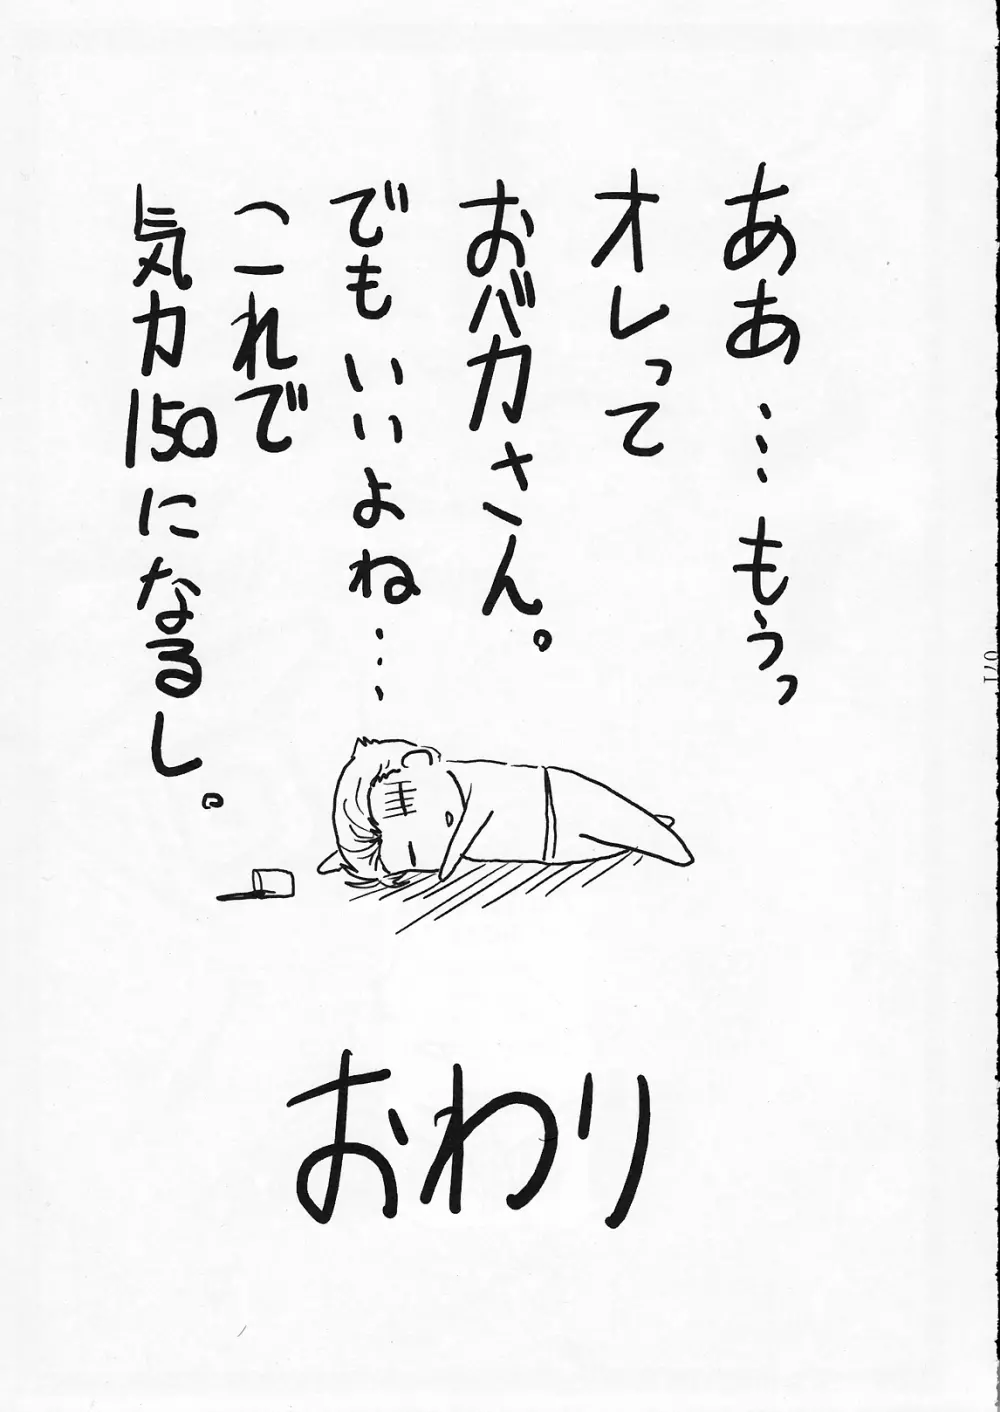 ああ…もうっ
オレって
おバカさん。
でもいいよね…
これで
気力150になるし。
おわり
071